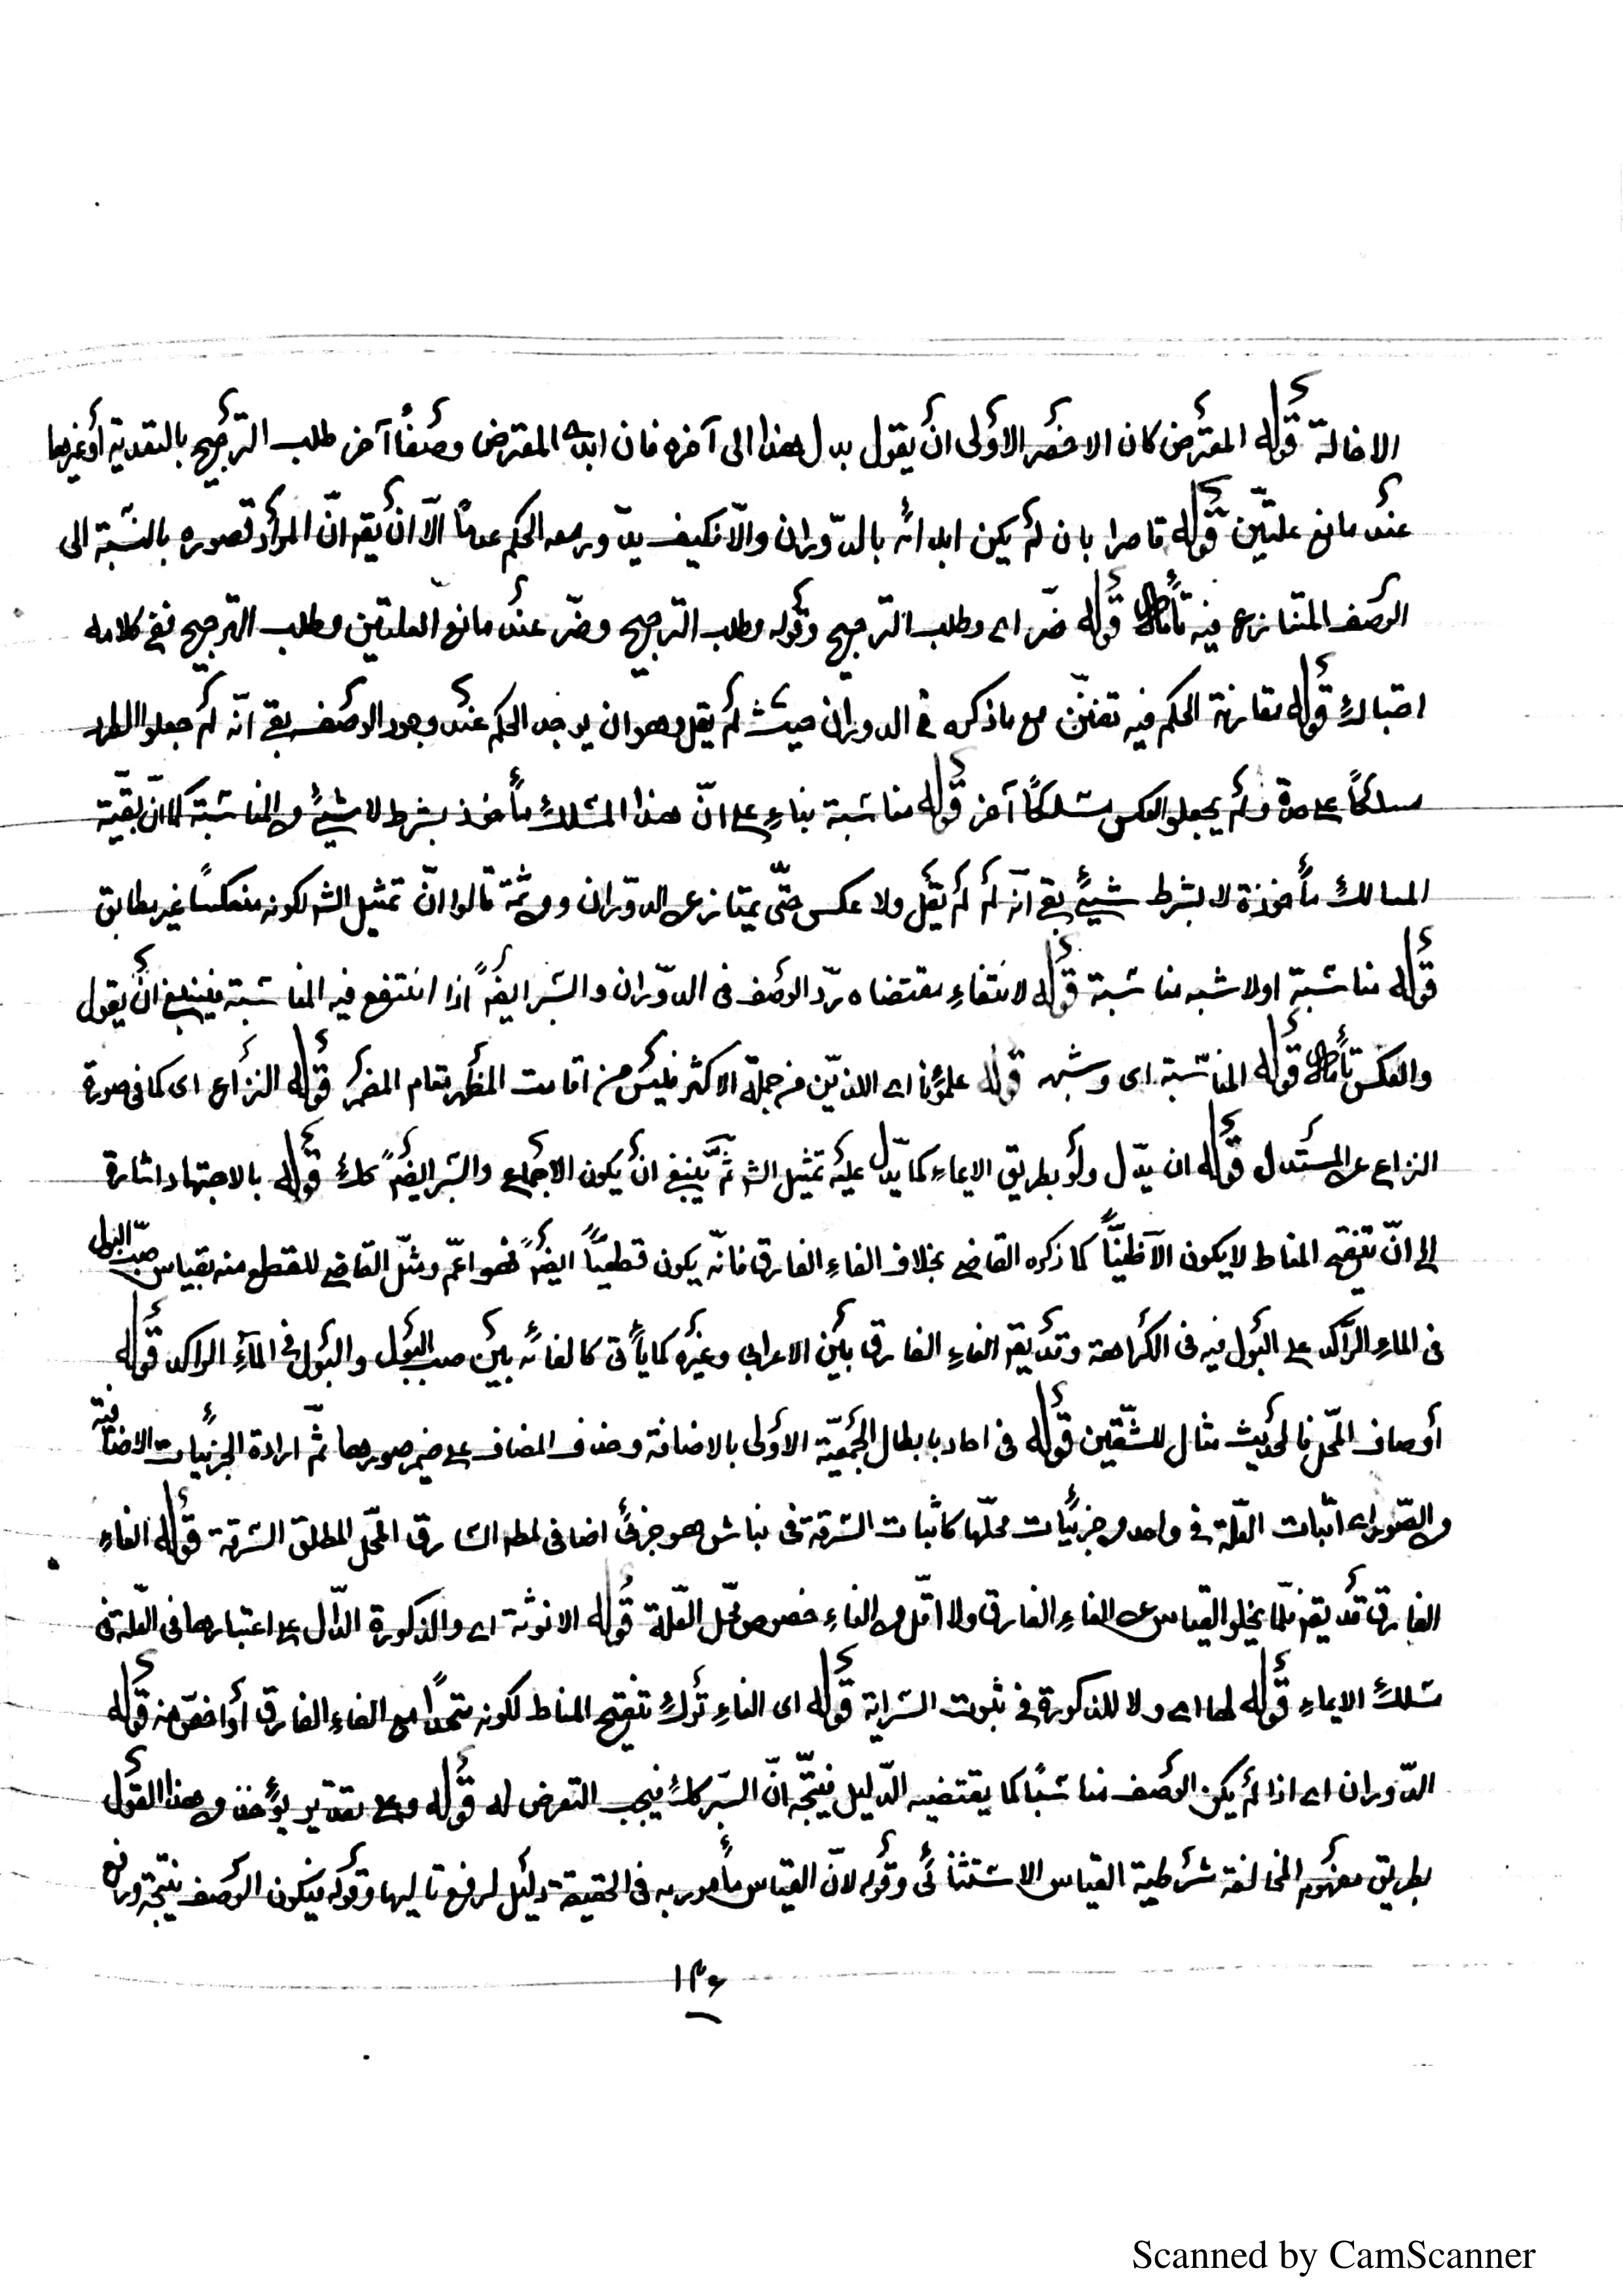 الاخالة قوله المعترض كان الاخصر الاولى ان يقول بدل هذا الى آخره فان ابدى المعترض وصفا آخر طلب الترجيح بالتعدية أو غيرها
عند مانع علتين قوله قاصرا بان لم يكن ابدائه بالدوران والا فكيف يدور معه الحكم عدما الا ان يقم ان المراد قصوره بالنسبة الى
الوصف المتنازع فيه تأمل قوله ضر اى وطلب الترجيح وقوله وطلب الترجيح وضر عند مانع العلتين وطلب الترجيح ففى كلامه
احتباك قوله مقارنة الحكم فيه تفنن مع ما ذكره فى الدوران حيث لم يقل وهو ان يوجد الحكم عند وجود الوصف بقى انه لم جعلوا الطرد
مسلكا على حدة ولم يجعلو العكس مسلكا آخر قوله مناسبة بناء على ان هذا المسلك مأخوذ بشرط لا شئ والمناسبة كما ان بقية
المسالك مأخوذة لا بشرط شئ بقى انه لم لم يقل ولا عكس حتى يمتاز عن الدوران ومن ثمة قالوا ان تمثيل الش لكونه منعكسا غير مطابق
قوله مناسبة اولا شبه مناسبة قوله لانتفاء مقتضاه يرد الوصف فى الدوران والسبر ايضا اذا انتفى فيه المناسبة فينبغى ان يقول
والعكس تأمل قوله المناسبة اى وشبه قوله علمؤنا اى اللذين من جملة الاكثر فليس من اقامت المظهر مقام المضمر قوله النزاع اى كما فى صورة
النزاع عن المستدل قوله ان يدل ولو بطريق الايماء كما يدل عليه تمثيل الش ثم ينبغى ان يكون الاجماع والسبر ايضا كك قوله بالاجتهاد اشارة
الى ان تنقيح المناط لا يكون الا ظنيا كما ذكره القاضى بخلاف الغاء الفارق فانه يكون قطعيا ايضا فهو اعم ومثل القاضى للقطع منه بقياس صب البول
فى الماء الراكد على البول فيه فى الكراهة وقد يقم الغاء الفارق بين الاعرابى وغيره كما يأتى كالغائه بين صب البول والبول فى الماء الراكد قوله
أوصاف المحل فالحديث مثال للشقين قوله فى احاد بابطال الجمعية الاولى بالاضافة وحذف المضاف على ضمير صورها ثم ارادة الجزئيات الاضافية
من الصور اى اثبات العلة فى واحد من جزئيات محلها كاثبات السرقة فى نباش هو جزئى اضافى لمط السارق المحل المطلق السرقة قوله الغاء
الفارق قد يقم فلما يخلو القياس عن الغاء الفارق ولا اقل من الغاء خصوص محل العلة قوله الانوثة اى والذكورة الدال على اعتبارها فى العلة فى
مسلك الايماء قوله لها اى ولا للذكورة فى ثبوت السراية قوله اى الغاء ترك تنقيح المناط لكونه متحدا مع الغاء الفارق أو اخص منه قوله
الدوران اى اذا لم يكن الوصف مناسبا كما يقتضيه الدليل فيتجه ان السبر كك فيجب التعرض له قوله وعلى تقدير يؤخذ من هذا القول
بطريق مفهوم المخالفة شرطية القياس الاستثنائى وقوله لان القياس مأمور به فى الحقيقة دليل لرفع تاليها وقوله فيكون الوصف نتيجة ورافع
١٣٦
Scanned by CamScanner